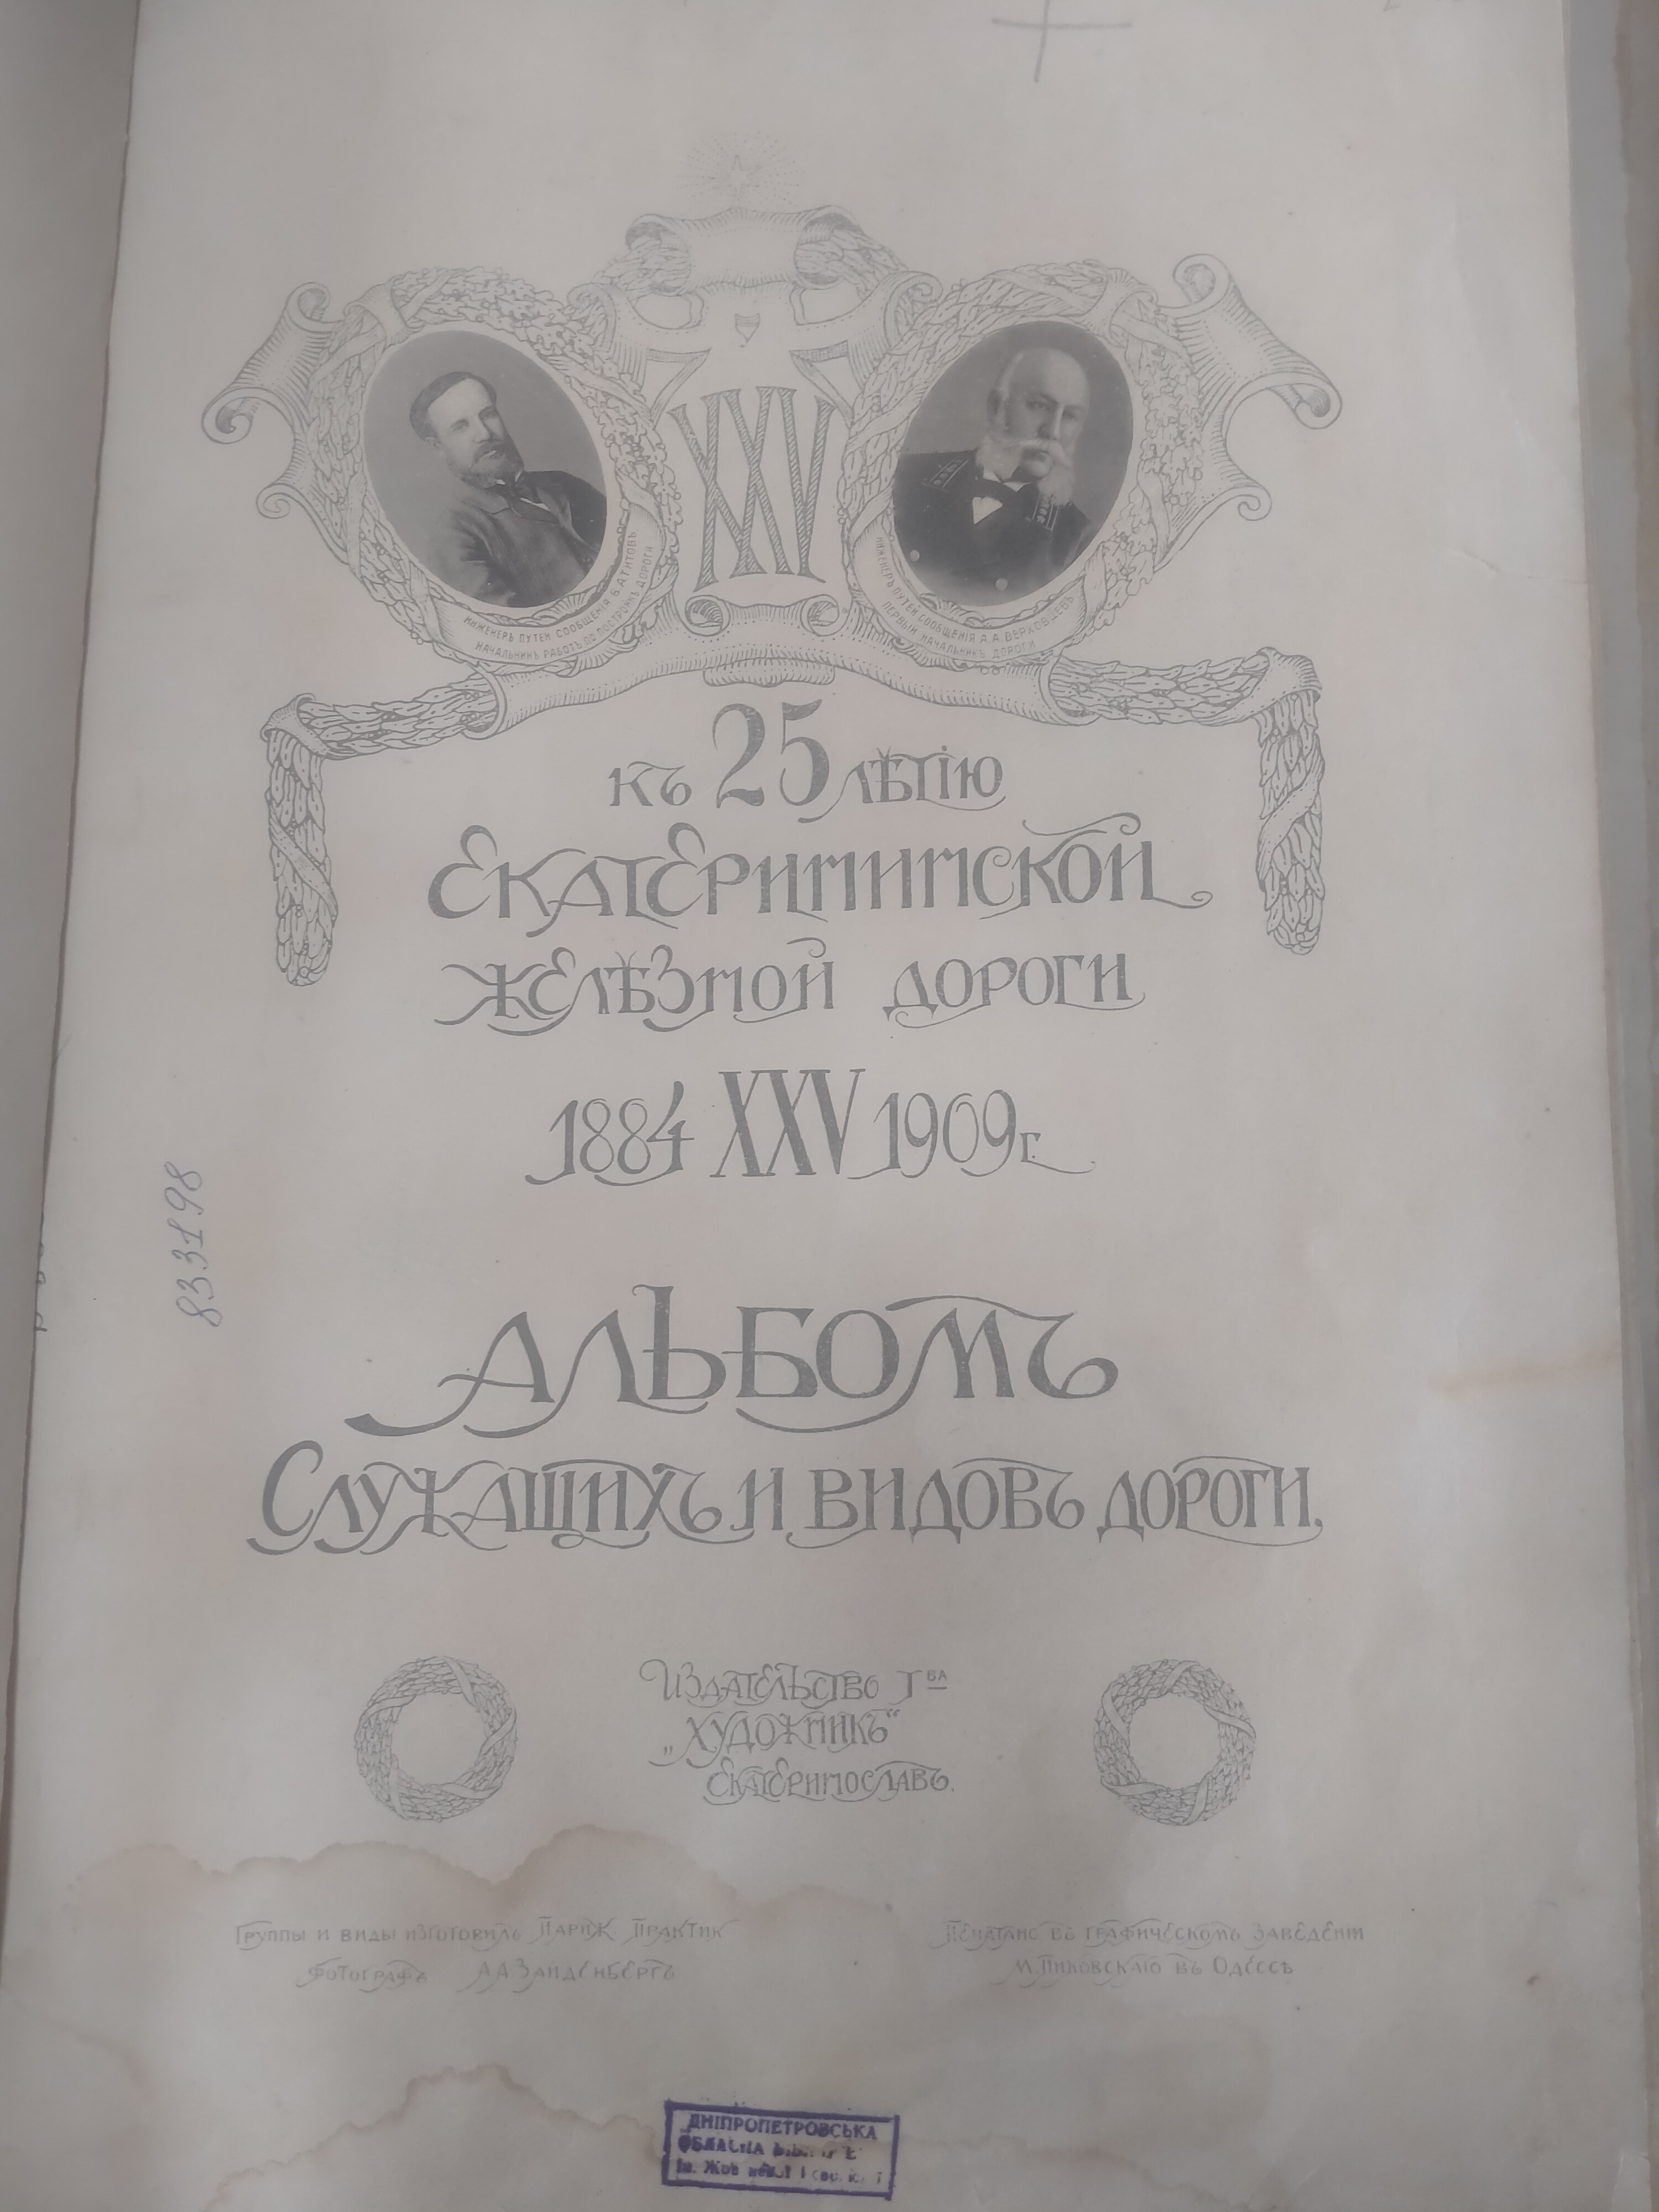 XXV
ИНЖЕНЕРЪ ПУТЕЙ СООБЩЕНІЯ В.А.ТИТОВЪ
НАЧАЛЬНИКЪ РАБОТЪ ПО ПОСТРОЙКѢ ДОРОГИ
ИНЖЕНЕРЪ ПУТЕЙ СООБЩЕНІЯ А.А.ВЕРХОВЦЕВЪ
ПЕРВЫЙ НАЧАЛЬНИКЪ ДОРОГИ
КЪ 25 ЛѢТІЮ
ЕКАТЕРИНИНСКОЙ
ЖЕЛѢЗНОЙ ДОРОГИ
1884 XXV 1909 г.
833198
АЛЬБОМЪ
СЛУЖАЩИХЪ И ВИДОВЪ ДОРОГИ.
ИЗДАТЕЛЬСТВО Т ВА
„ХУДОЖНИКЪ“
ЕКАТЕРИНОСЛАВЪ.
ГРУППЫ И ВИДЫ ИЗГОТОВИЛЪ ПАРИЖ ПРАКТИК
ФОТОГРАФЪ А А ЗАНДЕНБЕРГЪ
ПЕЧАТАНО ВЪ ГРАФИЧЕСКОМЪ ЗАВЕДЕНІИ
М.ПИКОВСКАГО ВЪ ОДЕССѢ
ДНІПРОПЕТРОВСЬКА
ім.